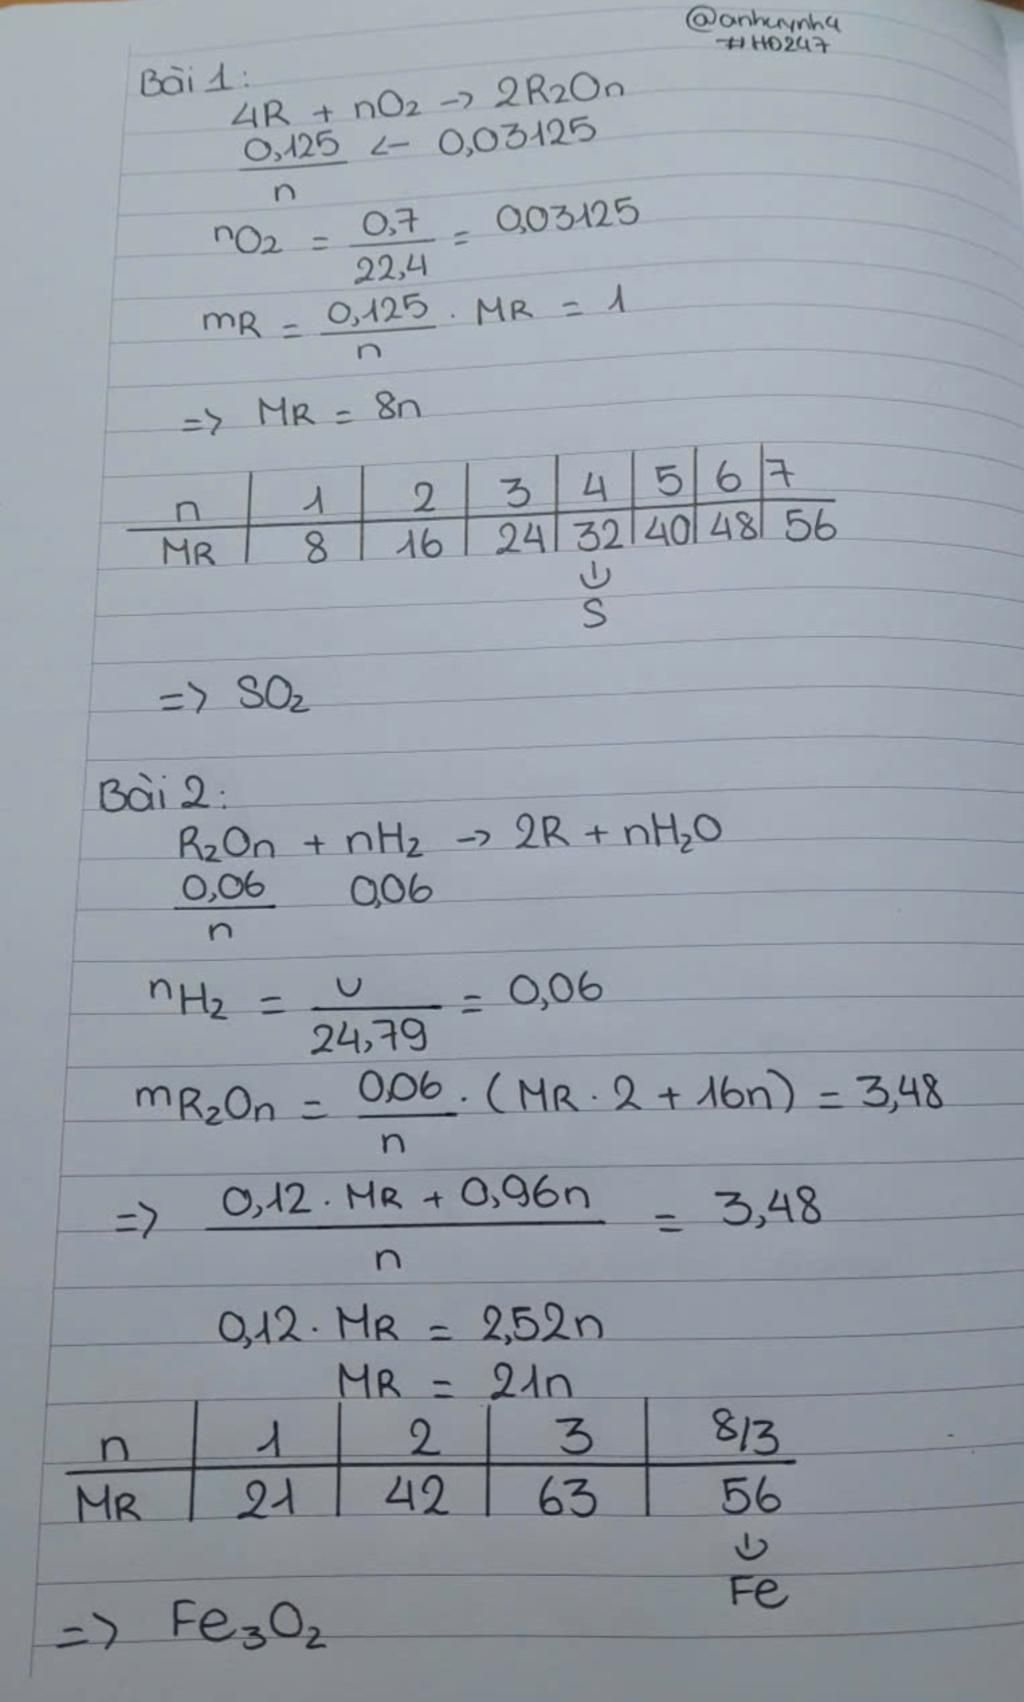 @anhuynh4
#HD247
Bài 1:
4R + nO2 -> 2R2On
0,125/n <- 0,03125
nO2 = 0,7/22,4 = 0,03125
mR = 0,125/n . MR = 1
=> MR = 8n
n | 1 | 2 | 3 | 4 | 5 | 6 | 7
MR | 8 | 16 | 24 | 32 | 40 | 48 | 56
S
=> SO2
Bài 2:
R2On + nH2 -> 2R + nH2O
0,06/n 0,06
nH2 = V/24,79 = 0,06
mR2On = 0,06/n . (MR . 2 + 16n) = 3,48
=> (0,12 . MR + 0,96n)/n = 3,48
0,12 . MR = 2,52n
MR = 21n
n | 1 | 2 | 3 | 8/3
MR | 21 | 42 | 63 | 56
Fe
=> Fe3O2